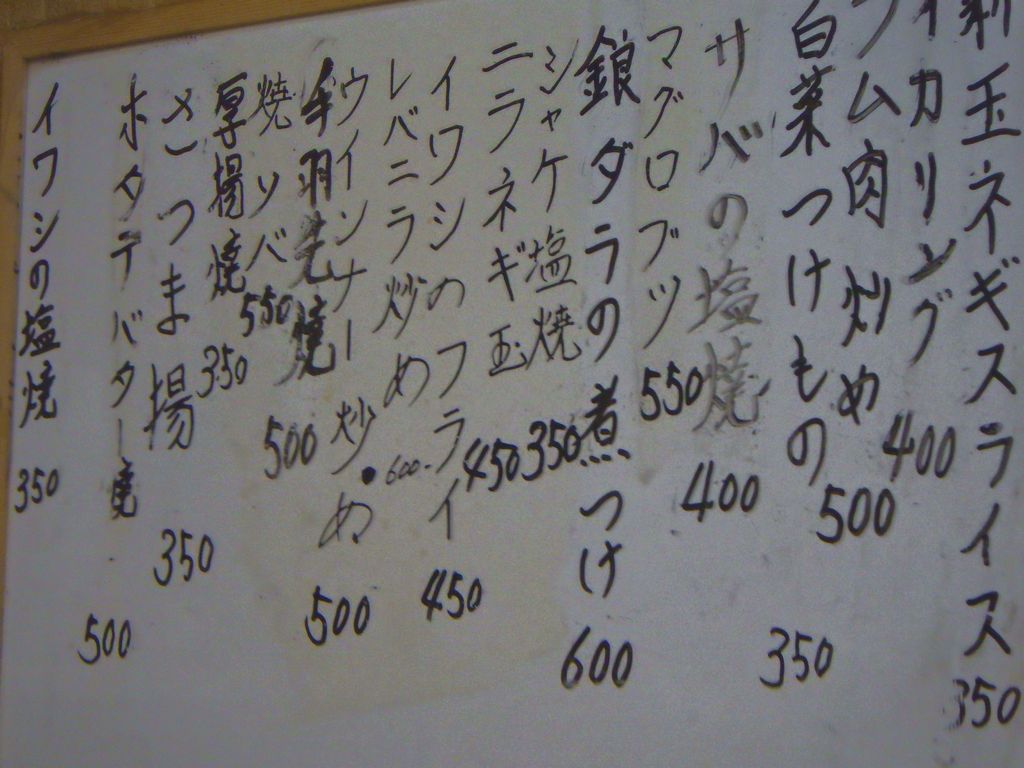 新玉ネギスライス 350
イカリング 400
ラム肉炒め 500
白菜つけもの 350
サバの塩焼 400
マグロブツ 550
銀ダラの煮つけ 600
シャケ塩焼 350
ニラネギ玉 450
イワシのフライ 450
レバニラ炒め 600
ウインナー炒め 500
手羽先焼 500
焼ソバ 550
厚揚焼 350
さつま揚 350
ホタテバター焼 500
イワシの塩焼 350